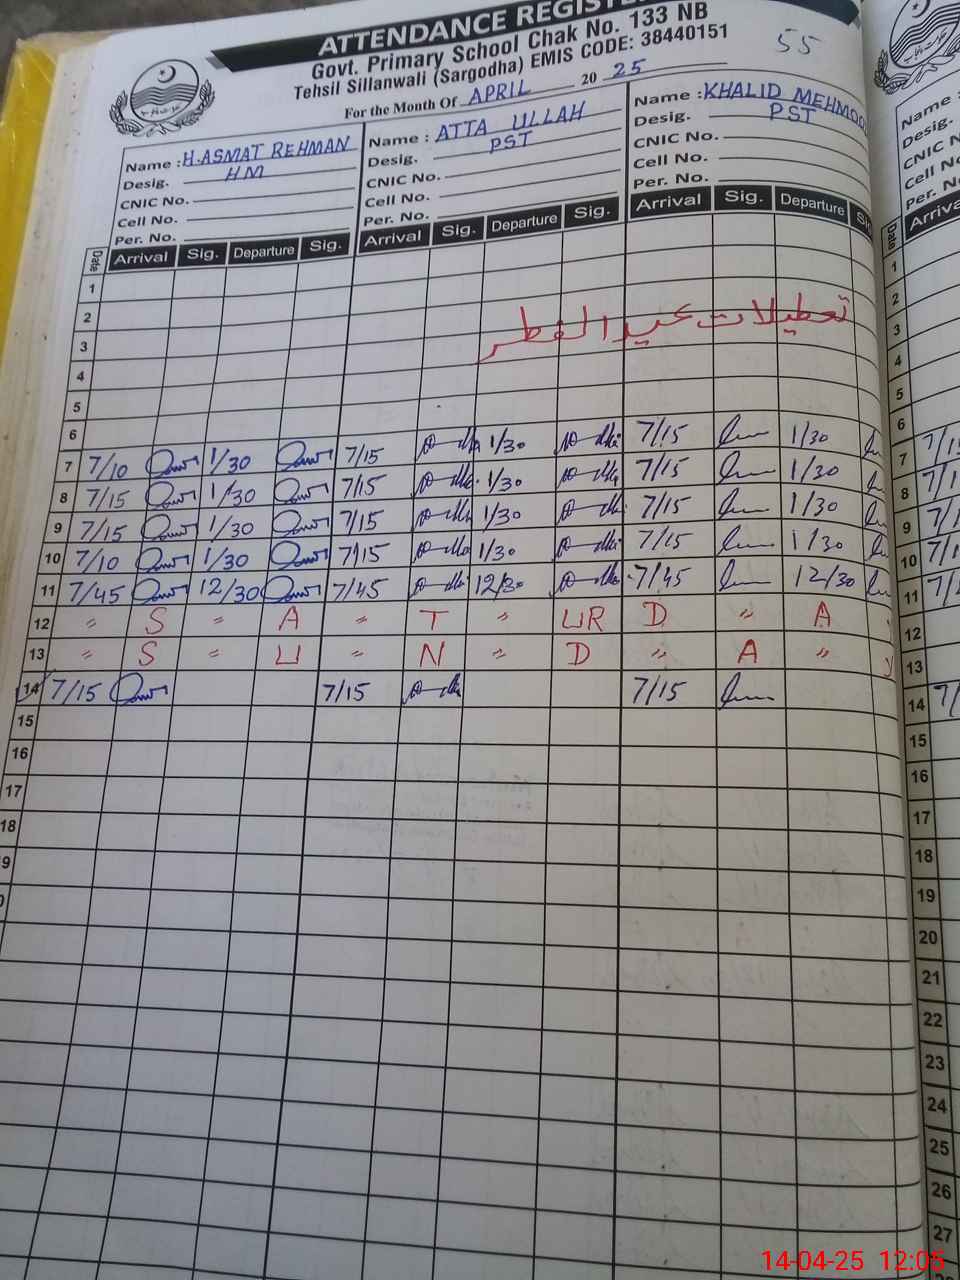 ATTENDANCE REGISTE
Govt. Primary School Chak No. 133 NB
Tehsil Sillanwali (Sargodha) EMIS CODE: 38440151
55
For the Month Of APRIL 2025
Name : H.ASMAT REHMAN Name : ATTA ULLAH Name : KHALID MEHMOO
Desig. HM Desig. PST Desig. PST
CNIC No. CNIC No. CNIC No.
Cell No. Cell No. Cell No.
Per. No. Per. No. Per. No.
Date Arrival Sig. Departure Sig. Arrival Sig. Departure Sig. Arrival Sig. Departure
1
2
تعطیلات عیدالفطر
3
4
5
6
7 7/10 1/30 7/15 1/30 7/15 1/30
8 7/15 1/30 7/15 1/30 7/15 1/30
9 7/15 1/30 7/15 1/30 7/15 1/30
10 7/10 1/30 7/15 1/30 7/15 1/30
11 7/45 12/30 7/45 12/30 7/45 12/30
12 " S " A " T " UR D " A "
13 " S " U " N " D " A " Y
14 7/15 7/15 7/15
15
16
17
18
9
0
Name :
Desig.
CNIC N
Cell No
Per. No
Arriva
1
2
3
4
5
6
7 7/15
8 7/1
9 7/1
10 7/1
11
12
13
14 7/
15
16
17
18
19
20
21
22
23
24
25
26
27
14-04-25 12:05